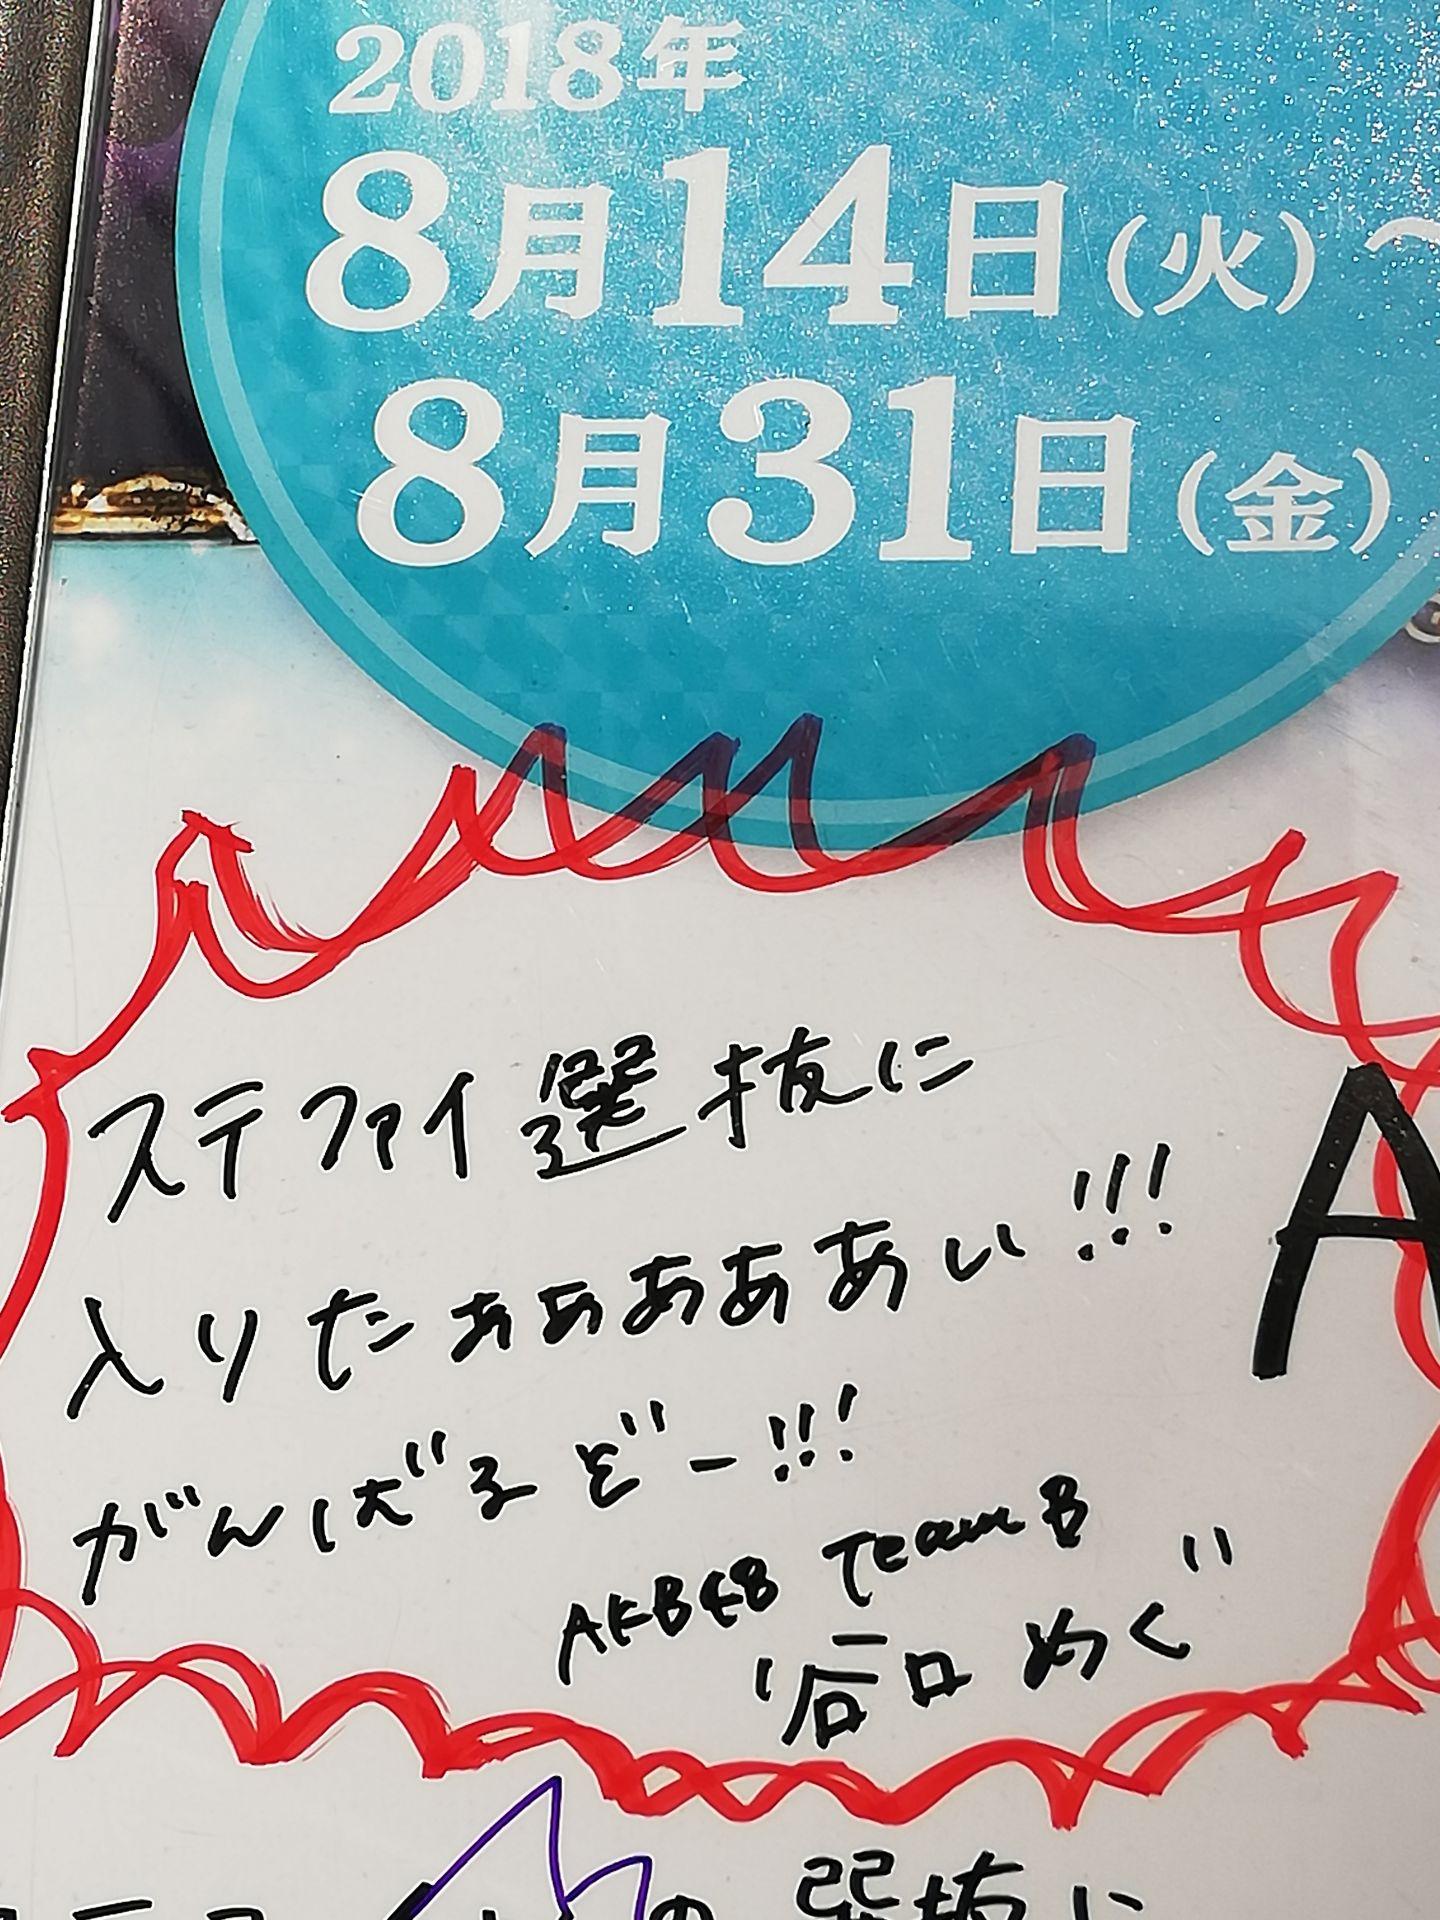 2018年
8月14日(火)〜
8月31日(金)
ステファイ選抜に
入りたぁぁあああい!!!
がんばるぞー!!!
AKB48 TeamB
谷口めぐ
A
の選抜に